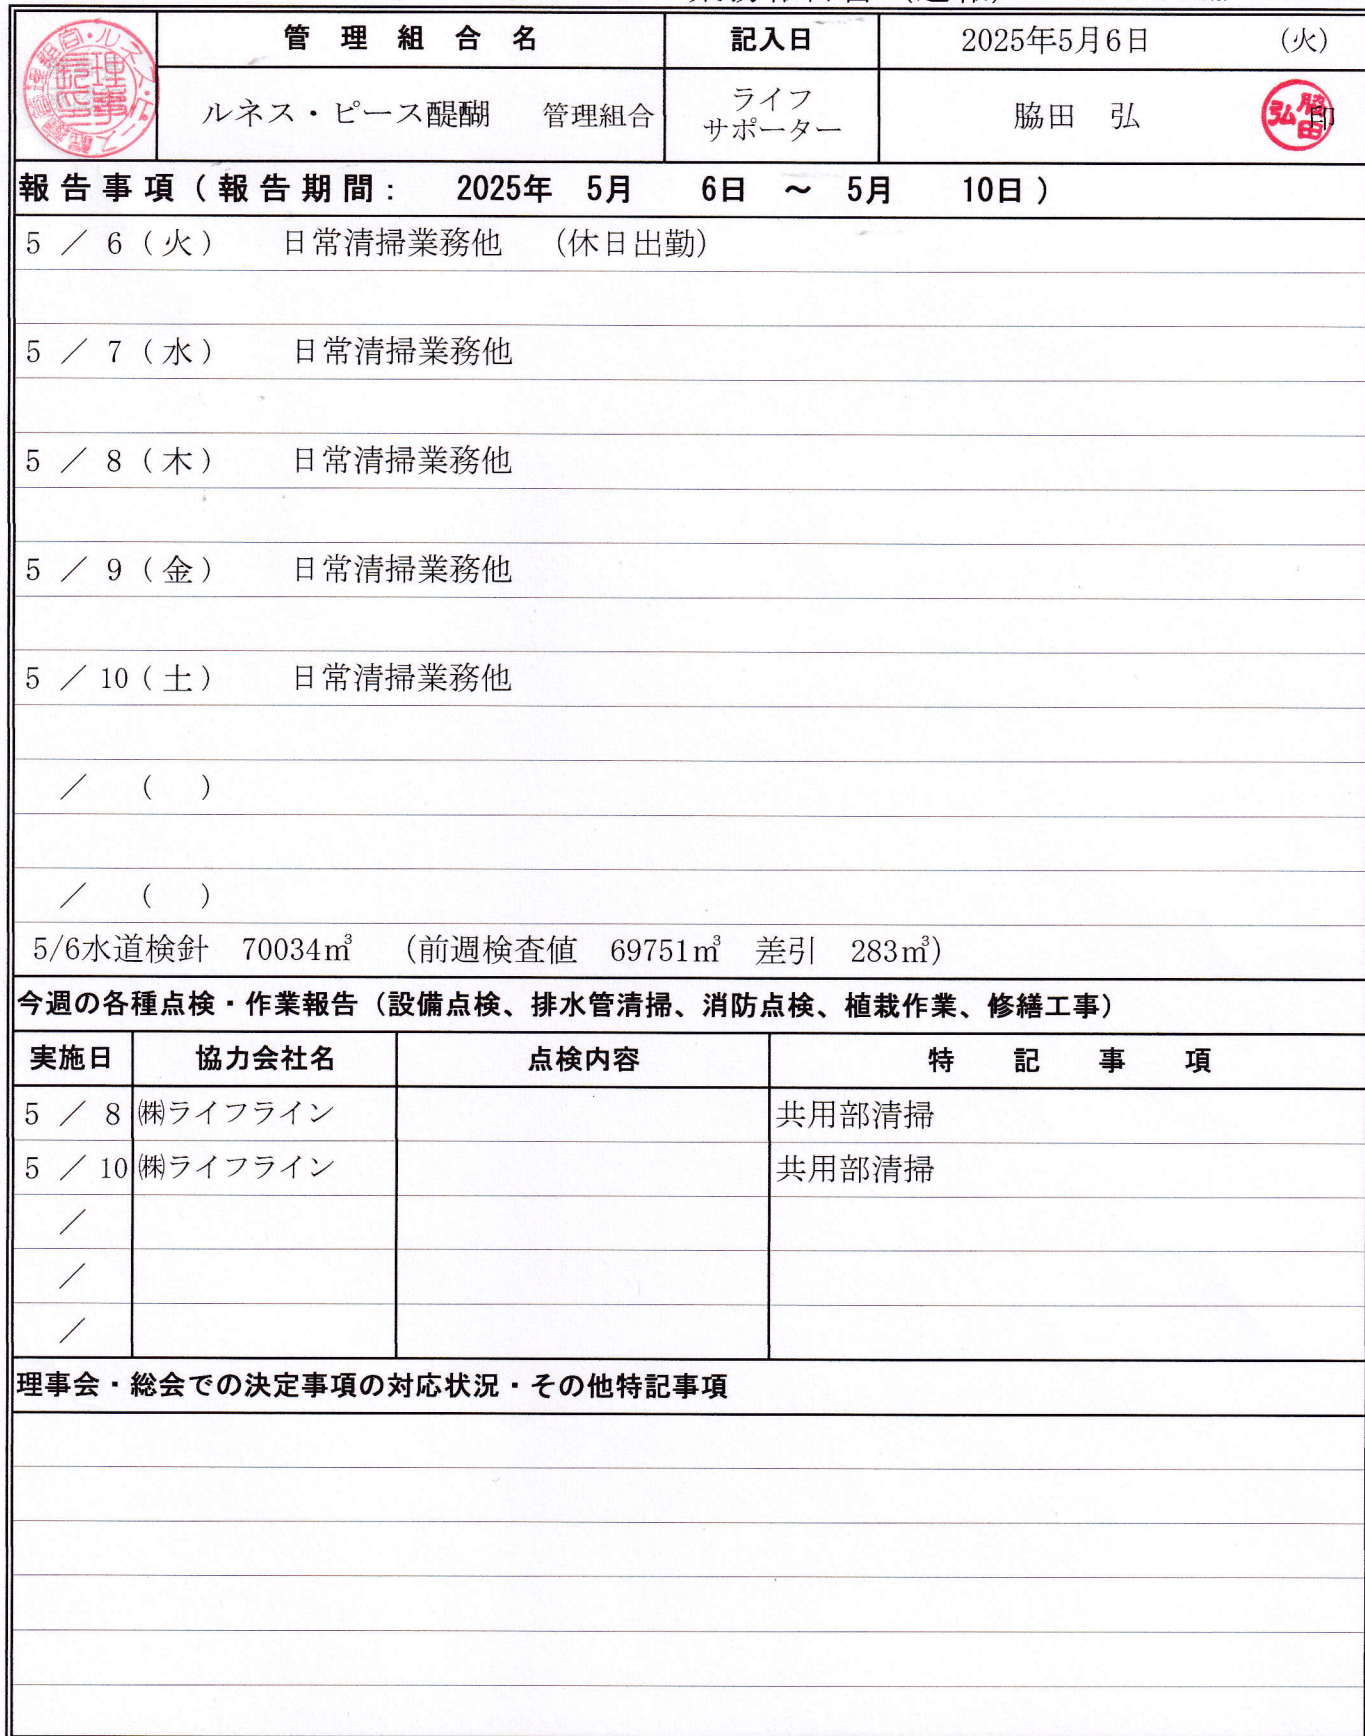 管理組合名 記入日 2025年5月6日 (火)
ルネス・ピース醍醐 管理組合 ライフサポーター 脇田 弘 印
報告事項(報告期間: 2025年 5月 6日 ～ 5月 10日)
5 / 6(火) 日常清掃業務他 (休日出勤)
5 / 7(水) 日常清掃業務他
5 / 8(木) 日常清掃業務他
5 / 9(金) 日常清掃業務他
5 / 10(土) 日常清掃業務他
/ ( )
/ ( )
5/6水道検針 70034㎥ (前週検査値 69751㎥ 差引 283㎥)
今週の各種点検・作業報告(設備点検、排水管清掃、消防点検、植栽作業、修繕工事)
実施日 協力会社名 点検内容 特記事項
5 / 8 ㈱ライフライン 共用部清掃
5 / 10 ㈱ライフライン 共用部清掃
/
/
/
理事会・総会での決定事項の対応状況・その他特記事項